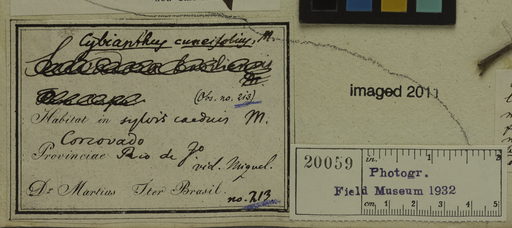 Cybianthus cuneifolius, M.
M.
(Obs. no. 213)
Habitat in sylvis caeduis M.
Corcovado
Provinciae Rio de Jo
vid. Miquel.
Dr. Martius Iter Brasil.
no. 213
imaged 2011
20059
in. 1 2
Photogr.
Field Museum 1932
cm. 1 2 3 4 5